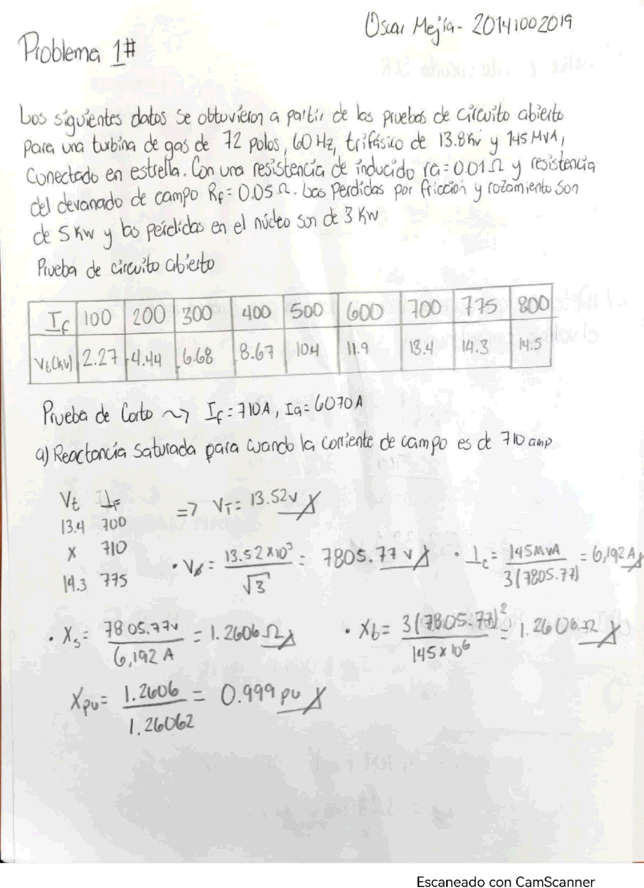 Oscar Mejía - 20141002019
Problema 1#
Los siguientes datos se obtuvieron a partir de las pruebas de circuito abierto
para una turbina de gas de 72 polos, 60 Hz, trifásico de 13.8 kv y 145 MVA,
Conectado en estrella. Con una resistencia de inducido ra = 0.01 Ω y resistencia
del devanado de campo Rf = 0.05 Ω. Las perdidas por friccion y rozamiento son
de 5 Kw y las pérdidas en el núcleo son de 3 Kw
Prueba de circuito abierto
If 100 200 300 400 500 600 700 775 800
Vt(kv) 2.27 4.44 6.68 8.67 10.4 11.9 13.4 14.3 14.5
Prueba de Corto ~> If = 710 A, Ia = 6070 A
a) Reactancia saturada para cuando la corriente de campo es de 710 amp
Vt If
13.4 700 => VT = 13.52 v
x 710
14.3 775
• Vø = 13.52 x 10³ / √3 = 7805.77 v • Ic = 145 MVA / 3(7805.77) = 6,192 A
• Xs = 7805.77v / 6,192 A = 1.2606 Ω • Xb = 3(7805.77)² / 145 x 10⁶ = 1.2606 Ω
Xpu = 1.2606 / 1.26062 = 0.999 pu
Escaneado con CamScanner